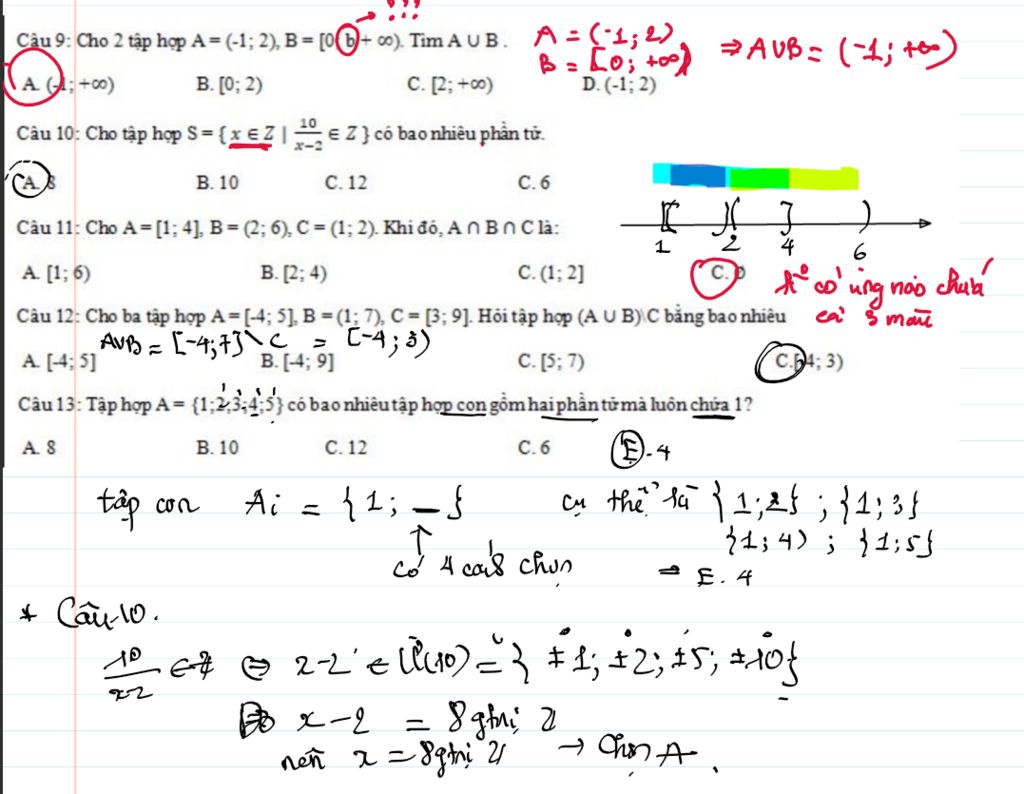 !!!
Câu 9: Cho 2 tập hợp A = (-1; 2), B = [0; b + ∞). Tìm A ∪ B .
A = (-1; 2)
B = [0; +∞)
⇒ A∪B = (-1; +∞)
A. (-1; +∞) B. [0; 2) C. [2; +∞) D. (-1; 2)
Câu 10: Cho tập hợp S = { x ∈ Z | 10/(x−2) ∈ Z } có bao nhiêu phần tử.
A. 8 B. 10 C. 12 C. 6
1 2 4 6
Câu 11: Cho A = [1; 4], B = (2; 6), C = (1; 2). Khi đó, A ∩ B ∩ C là:
A. [1; 6) B. [2; 4) C. (1; 2] C.
có nào chứa
cả 3 màu
Câu 12: Cho ba tập hợp A = [-4; 5], B = (1; 7), C = [3; 9]. Hỏi tập hợp (A ∪ B)\C bằng bao nhiêu
A∪B = [-4; 7] \ C = [-4; 3)
A. [-4; 5] B. [-4; 9] C. [5; 7) C. [-4; 3)
Câu 13: Tập hợp A = {1;2;3;4;5} có bao nhiêu tập hợp con gồm hai phần tử mà luôn chứa 1?
A. 8 B. 10 C. 12 C. 6 E. 4
tập con Ai = {1; _ } cụ thể là {1; 2} ; {1; 3}
{1; 4) ; {1; 5}
có 4 cách chọn
⇒ E. 4
* Câu 10.
10/(x-2) ∈ Z ⇔ x-2 ∈ Ư(10) = { ±1; ±2; ±5; ±10}
Do x-2 = 8 gtrị
nên x = 8 gtrị → Chọn A.